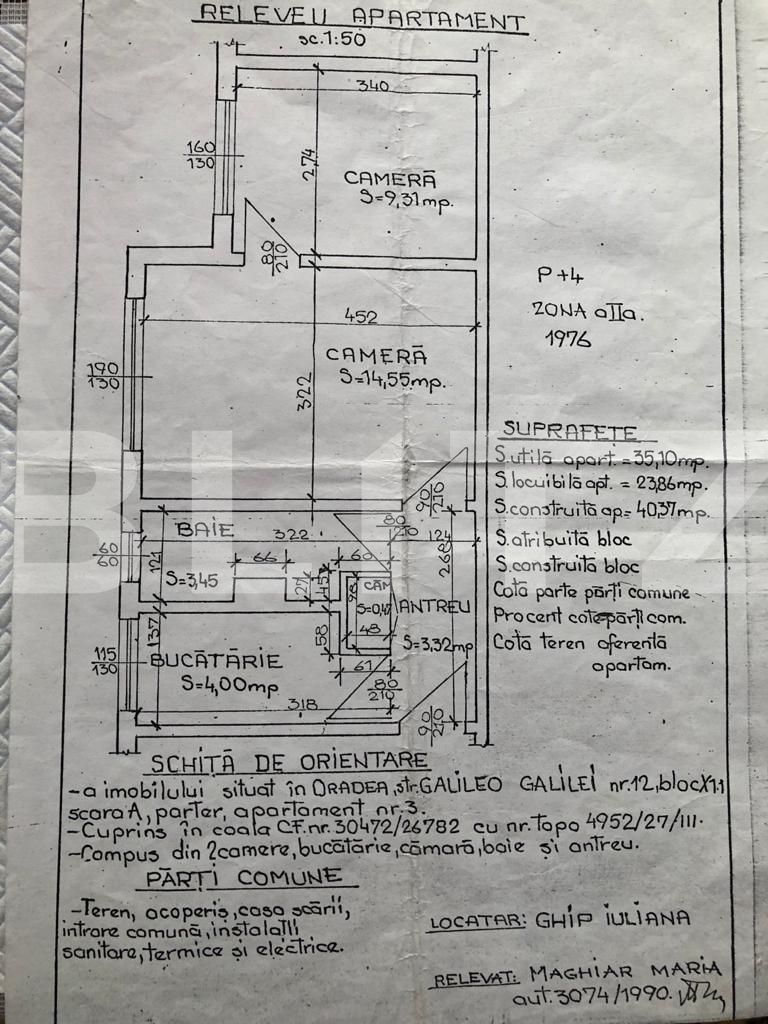 RELEVEU APARTAMENT
sc.1:50
340
160
130
2,74
CAMERĂ
S=9,31mp.
80
210
P+4
ZONA aIIa.
1976
452
CAMERĂ
S=14,55mp.
190
130
322
SUPRAFEȚE
S.utilă apart.=35,10mp.
S.locuibilă apt. = 23,86mp.
S.construită ap=40,37mp.
S.atribuită bloc
S.construită bloc
Cotă parte părți comune
Procent cotepărți com.
Cotă teren aferentă
apartam.
BLITZ
90
210
BAIE
322
80
210
124
268
60
60
121
66
60
S=3,45
27
45
CĂM
S=0,47
98
48
ANTREU
S=3,32mp
137
58
115
130
BUCĂTĂRIE
S=4,00mp
61
80
210
318
90
210
SCHIȚĂ DE ORIENTARE
-a imobilului situat în ORADEA,str.GALILEO GALILEI nr.12,blocX11
scara A, parter, apartament nr.3.
-Cuprins în coala CF.nr.30472/26782 cu nr.topo 4952/27/III.
-Compus din 2camere,bucătărie,cămară,baie și antreu.
PĂRȚI COMUNE
-Teren, acoperiș,casa scării,
intrare comună,instalații
sanitare,termice și electrice.
LOCATAR: GHIP IULIANA
RELEVAT: MAGHIAR MARIA
aut.3074/1990.